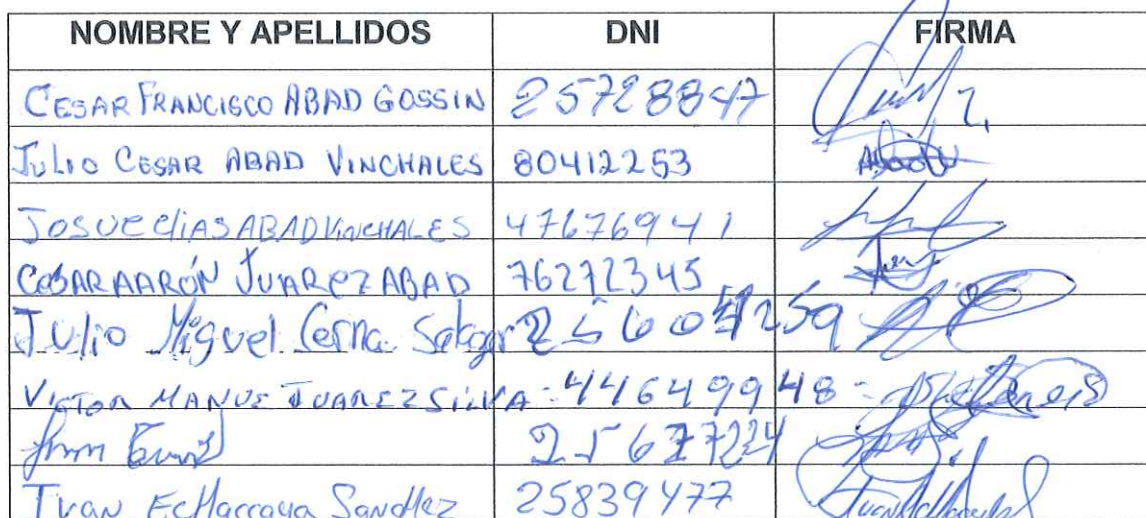 NOMBRE Y APELLIDOS DNI FIRMA
CESAR FRANCISCO ABAD GOSSIN 25728847
JULIO CESAR ABAD VINCHALES 80412253
JOSUE ELIAS ABAD VINCHALES 47676941
CESAR AARÓN JUAREZ ABAD 76272345
Julio Miguel Cerna Salazar
VICTOR MANUE JUAREZ SILVA - 44649948 -
Ivan Echaccaya Sanchez 25839477